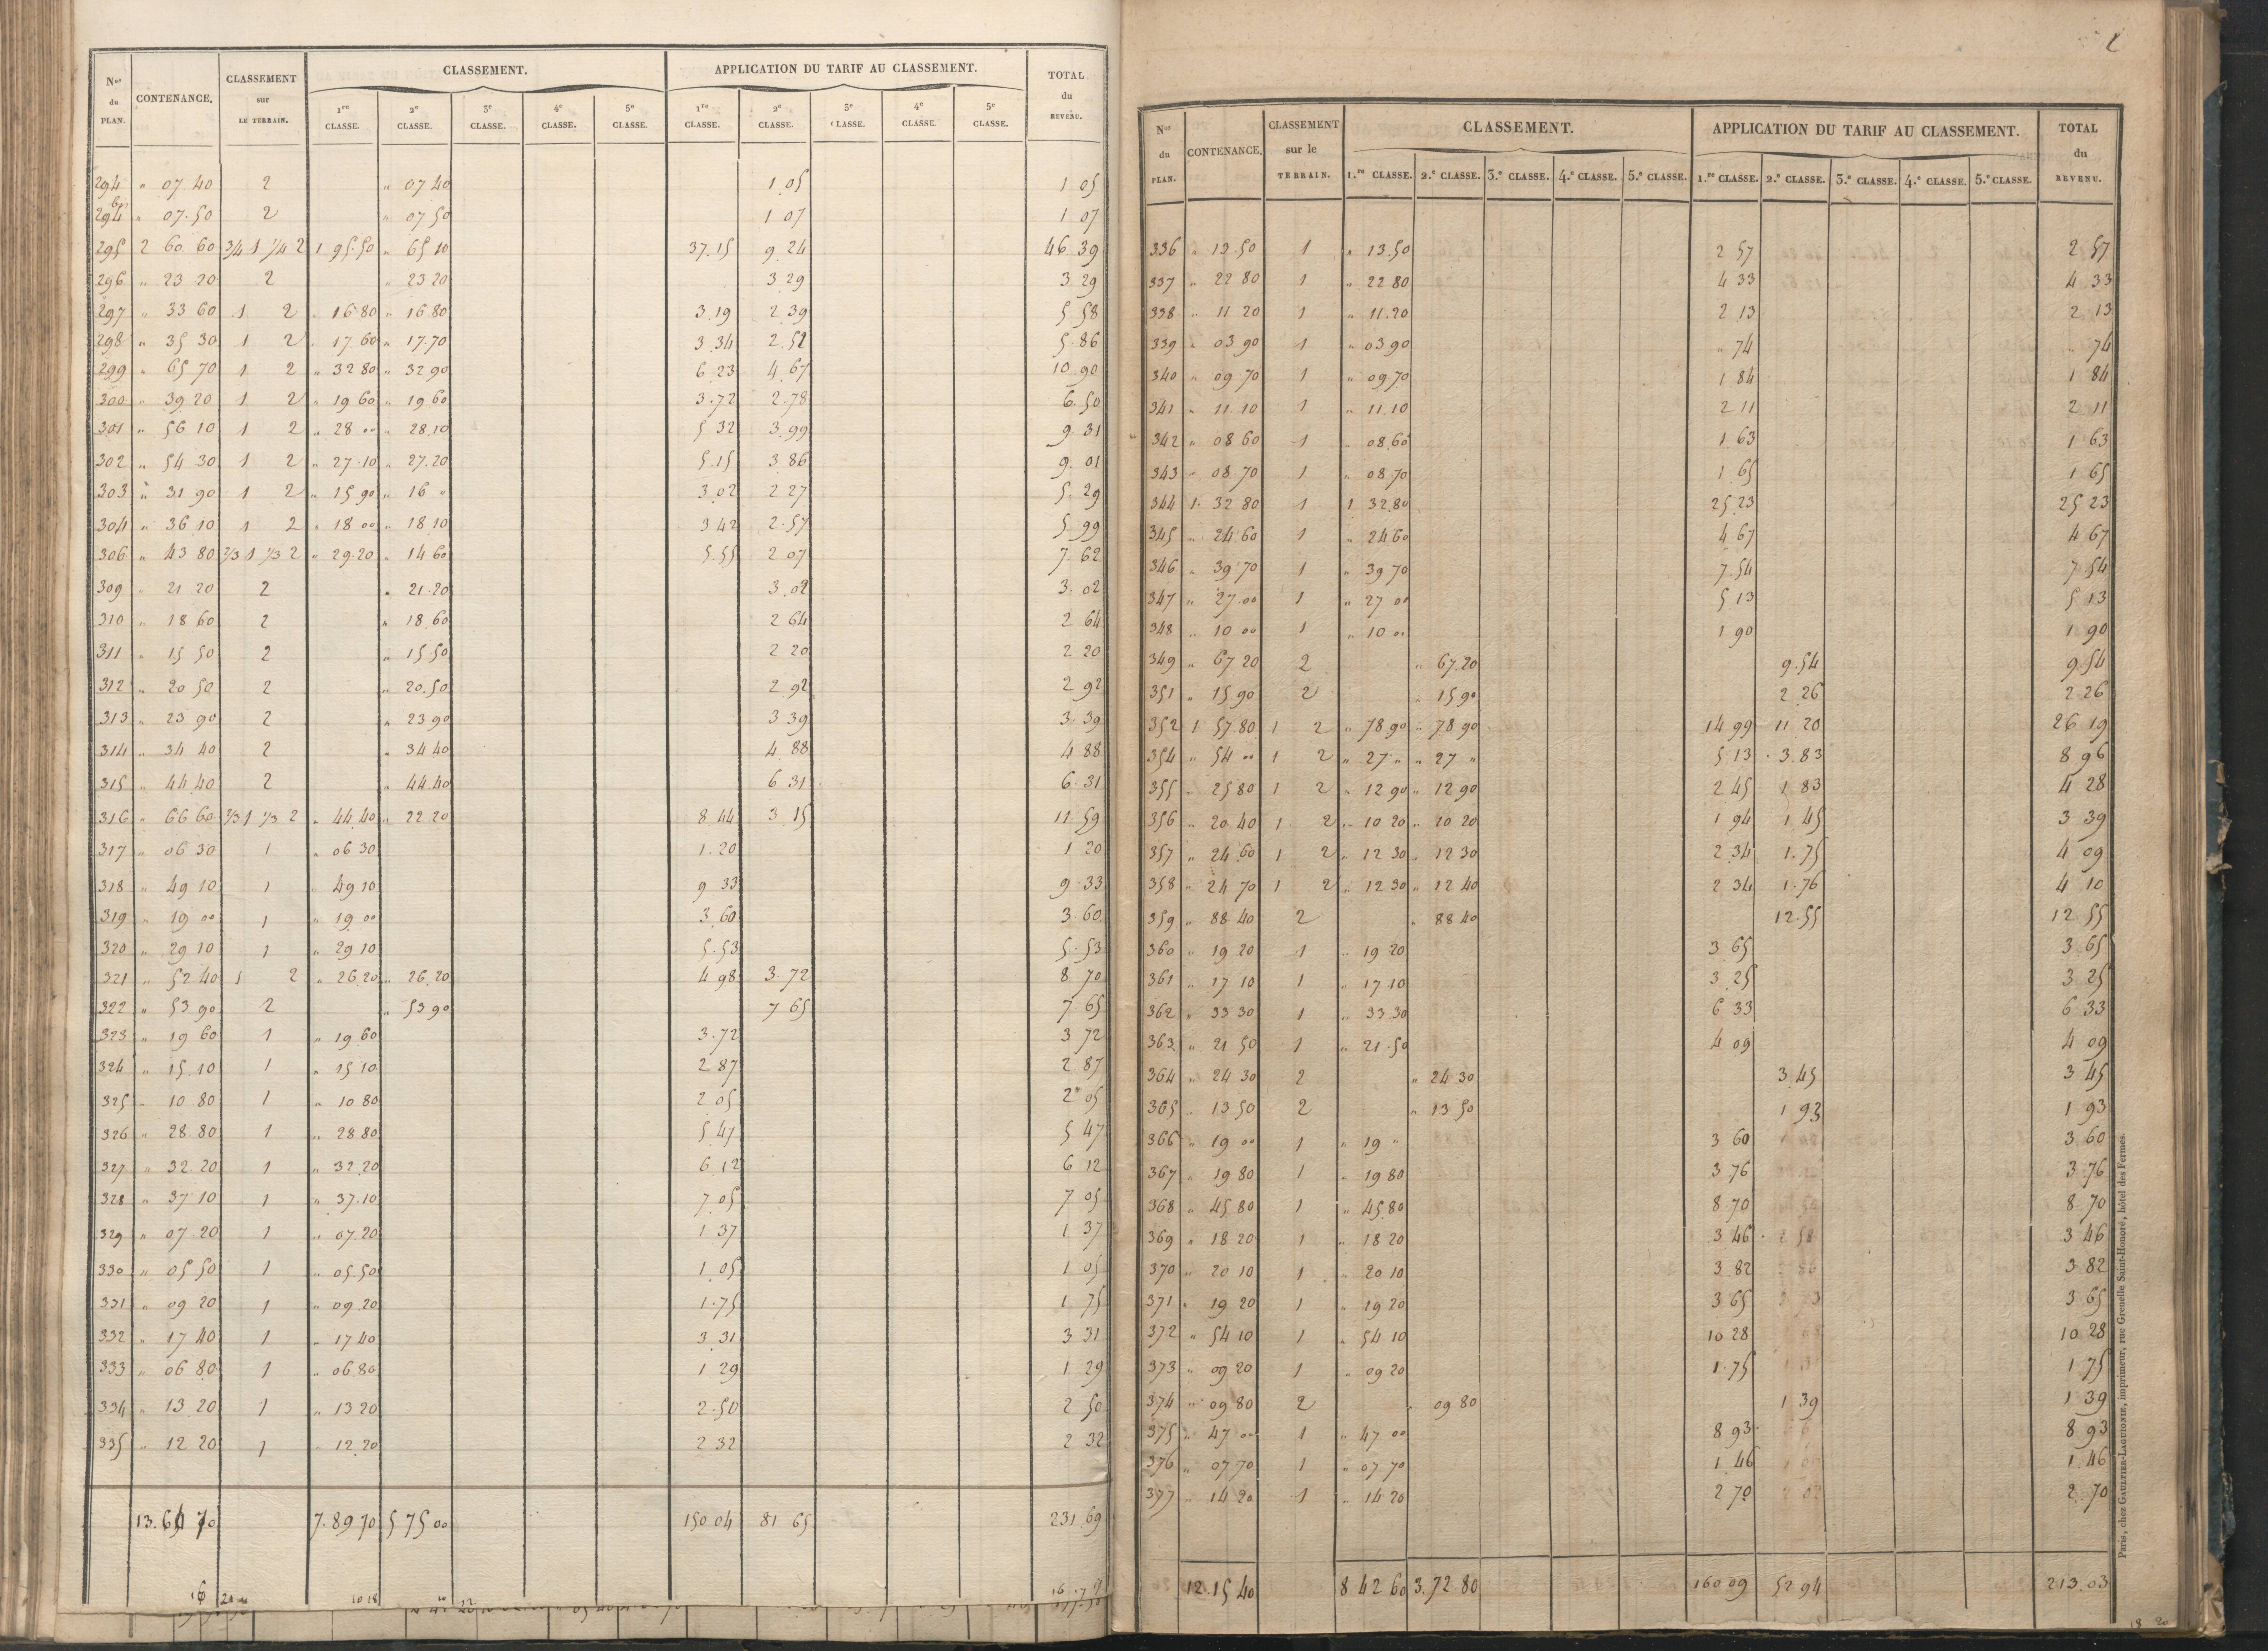 Nos du PLAN. CONTENANCE. CLASSEMENT sur LE TERRAIN. CLASSEMENT. APPLICATION DU TARIF AU CLASSEMENT. TOTAL du REVENU.
1re CLASSE. 2e CLASSE. 3e CLASSE. 4e CLASSE. 5e CLASSE. 1re CLASSE. 2e CLASSE. 3e CLASSE. 4e CLASSE. 5e CLASSE.
294 " 07 40 2 " 07 40 1 05 1 05
294 bis " 07.50 2 " 07 50 1 07 1 07
295 2 60 60 3/4 1 1/4 2 1 95.50 " 65 10 37.15 9 24 46 39
296 " 23 20 2 " 23 20 3 29 3 29
297 " 33 60 1 2 " 16.80 " 16 80 3.19 2 39 5 58
298 " 35 30 1 2 " 17 60 " 17.70 3 34 2.52 5.86
299 " 65 70 1 2 " 32 80 " 32 90 6 23 4 67 10 90
300 " 39 20 1 2 " 19 60 " 19 60 3.72 2.78 6.50
301 " 56 10 1 2 " 28 00 " 28.10 5 32 3.99 9.31
302 " 54 30 1 2 " 27.10 " 27.20 5.15 3 86 9.01
303 " 31 90 1 2 " 15 90 " 16 " 3 02 2 27 5.29
304 " 36 10 1 2 " 18 00 " 18 10 3 42 2.57 5 99
306 " 43 80 2/3 1 1/3 2 " 29.20 " 14 60 5.55 2 07 7.62
309 " 21 20 2 " 21.20 3.02 3.02
310 " 18 60 2 " 18.60 2 64 2 64
311 " 15 50 2 " 15.50 2 20 2 20
312 " 20 50 2 " 20.50 2 92 2 92
313 " 23 90 2 " 23 90 3 39 3.39
314 " 34 40 2 " 34 40 4 88 4 88
315 " 44.40 2 " 44.40 6 31 6.31
316 " 66 60 2/3 1 1/3 2 " 44.40 " 22 20 8 44 3.15 11 59
317 " 06 30 1 " 06 30 1.20 1 20
318 " 49 10 1 " 49 10 9 33 9.33
319 " 19 00 1 " 19 00 3.60 3 60
320 " 29 10 1 " 29 10 5.53 5.53
321 " 52 40 1 2 " 26 20 " 26.20 4 98 3.72 8 70
322 " 53 90 2 " 53 90 7 65 7 65
323 " 19 60 1 " 19 60 3.72 3 72
324 " 15.10 1 " 15 10 2 87 2 87
325 " 10 80 1 " 10 80 2 05 2 05
326 " 28.80 1 " 28.80 5.47 5 47
327 " 32 20 1 " 32.20 6 12 6 12
328 " 37 10 1 " 37.10 7.05 7 05
329 " 07 20 1 " 07.20 1 37 1 37
330 " 05 50 1 " 05.50 1.05 1 05
331 " 09 20 1 " 09.20 1.75 1 75
332 " 17 40 1 " 17 40 3.31 3 31
333 " 06 80 1 " 06 80 1 29 1 29
334 " 13 20 1 " 13 20 2.50 2 50
335 " 12 20 1 " 12.20 2 32 2 32
13.64 70 7.89 70 5 75 00 150 04 81 65 231.69
2
Nos du PLAN. CONTENANCE. CLASSEMENT sur le TERRAIN. CLASSEMENT. APPLICATION DU TARIF AU CLASSEMENT. TOTAL du REVENU.
1.re CLASSE. 2.e CLASSE. 3.e CLASSE. 4.e CLASSE. 5.e CLASSE. 1.re CLASSE. 2.e CLASSE. 3.e CLASSE. 4.e CLASSE. 5.e CLASSE.
336 " 13.50 1 " 13.50 2 57 2 57
337 " 22 80 1 " 22 80 4 33 4 33
338 " 11 20 1 " 11.20 2 13 2 13
339 " 03 90 1 " 03 90 " 74 " 74
340 " 09 70 1 " 09.70 1 84 1 84
341 " 11 10 1 " 11.10 2 11 2 11
342 " 08 60 1 " 08.60 1 63 1 63
343 " 08.70 1 " 08 70 1 65 1 65
344 1. 32 80 1 1 32.80 25.23 25 23
345 " 24.60 1 " 24 60 4 67 4 67
346 " 39 70 1 " 39 70 7.54 7.54
347 " 27.00 1 " 27 00 5 13 5 13
348 " 10 00 1 " 10 00 1 90 1 90
349 " 67 20 2 " 67.20 9.54 9.54
351 " 15 90 2 " 15 90 2.26 2 26
352 1 57.80 1 2 " 78.90 " 78 90 14 99 11 20 26 19
354 " 54 00 1 2 " 27 " " 27 " 5.13 3.83 8 96
355 " 25 80 1 2 " 12 90 " 12 90 2 45 1 83 4 28
356 " 20 40 1 2 " 10 20 " 10 20 1 94 1 45 3 39
357 " 24.60 1 2 " 12 30 " 12 30 2 34 1.75 4 09
358 " 24 70 1 2 " 12 30 " 12 40 2 34 1.76 4 10
359 " 88 40 2 " 88 40 12.55 12 55
360 " 19 20 1 " 19 20 3 65 3 65
361 " 17 10 1 " 17.10 3 25 3 25
362 " 33 30 1 " 33.30 6 33 6 33
363 " 21 50 1 " 21.50 4 09 4 09
364 " 24 30 2 " 24 30 3.45 3 45
365 " 13.50 2 " 13 50 1 93 1 93
366 " 19 00 1 " 19 " 3 60 3 60
367 " 19 80 1 " 19 80 3 76 3.76
368 " 45 80 1 " 45.80 8 70 8 70
369 " 18 20 1 " 18 20 3 46 3 46
370 " 20 10 1 " 20 10 3.82 3 82
371 " 19 20 1 " 19 20 3 65 3 65
372 " 54 10 1 " 54 10 10 28 10 28
373 " 09 20 1 " 09 20 1.75 1 75
374 " 09 80 2 " 09 80 1 39 1 39
375 " 47 00 1 " 47 00 8 93 8 93
376 " 07 70 1 " 07 70 1 46 1.46
377 " 14 20 1 " 14 20 2 70 2.70
12.15 40 8 42 60 3.72 80 160 09 52 94 213.03
Paris, chez GAULTIER-LAGUIONIE, imprimeur, rue Grenelle Saint-Honoré, hôtel des Fermes.